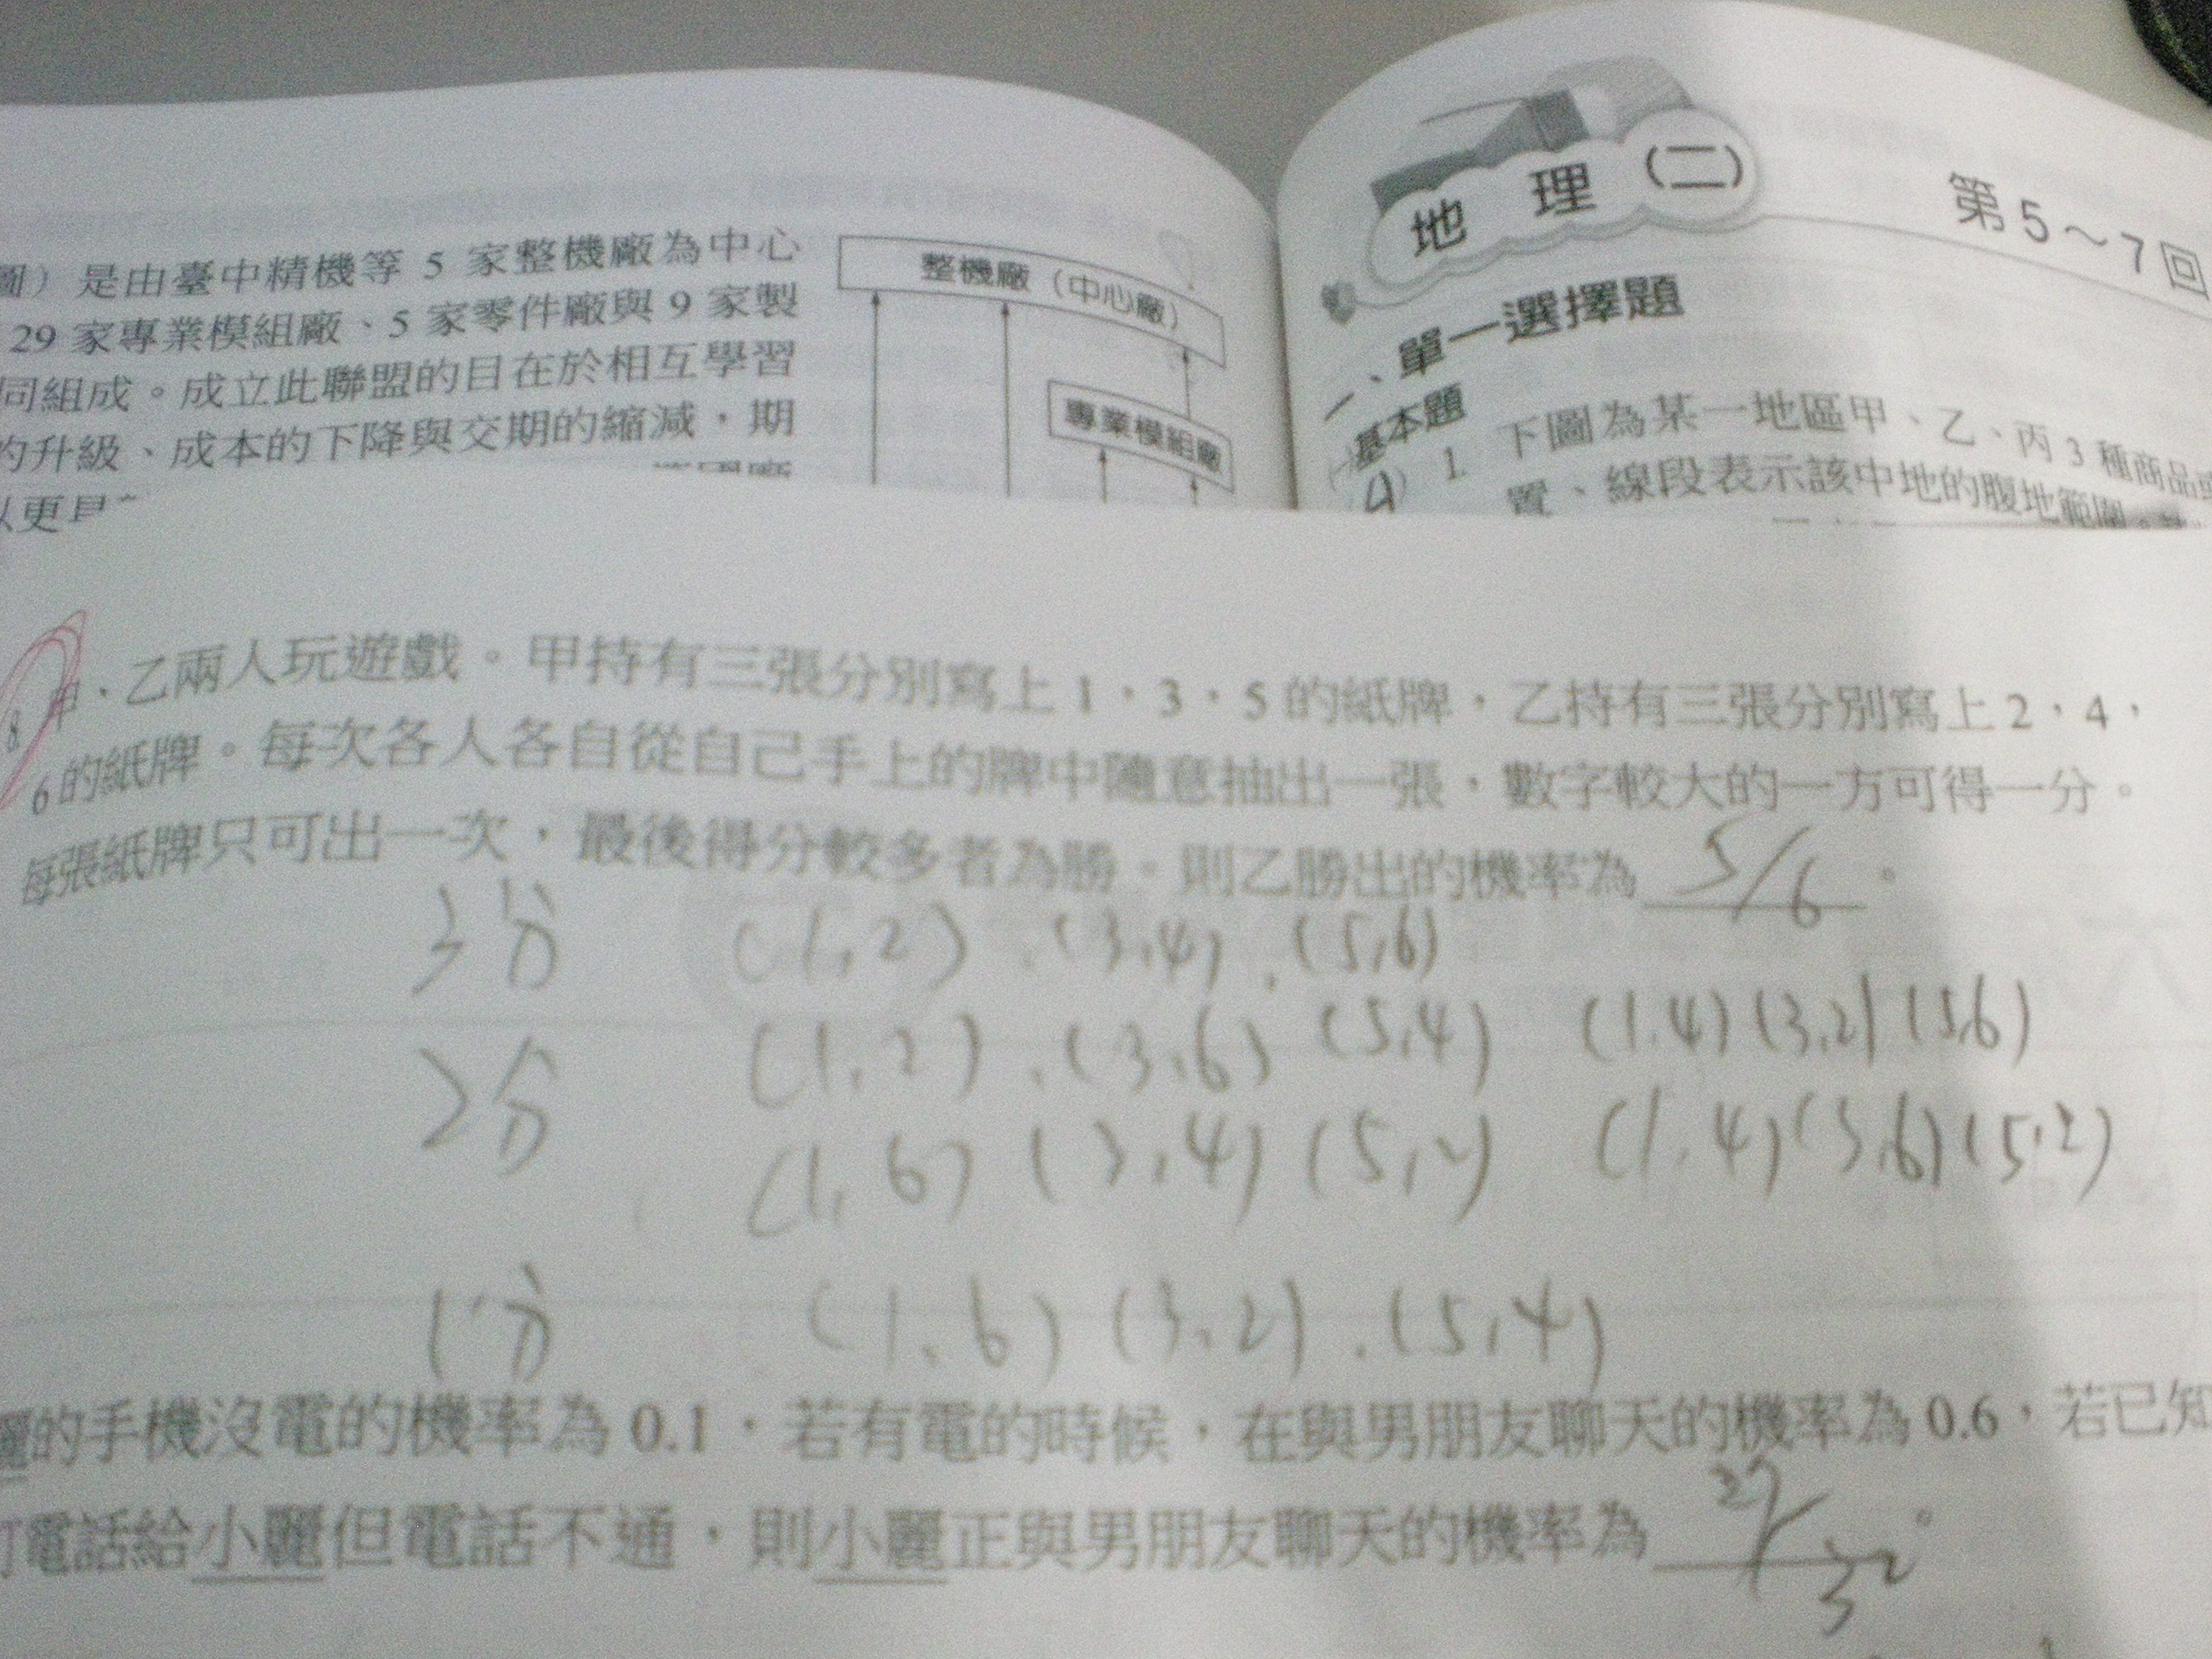 圖）是由臺中精機等 5 家整機廠為中心
29 家專業模組廠、5 家零件廠與 9 家製
同組成。成立此聯盟的目在於相互學習
的升級、成本的下降與交期的縮減，期
以更具
整機廠（中心廠）
專業模組廠
地理（二）
第 5～7 回
一、單一選擇題
基本題
1. 下圖為某一地區甲、乙、丙 3 種商品
置、線段表示該中地的腹地範圍。
8 甲、乙兩人玩遊戲。甲持有三張分別寫上 1，3，5 的紙牌，乙持有三張分別寫上 2，4，
6 的紙牌。每次各人各自從自己手上的牌中隨意抽出一張，數字較大的一方可得一分。
每張紙牌只可出一次，最後得分較多者為勝。則乙勝出的機率為 5/6 。
3分 (1,2)、(3,4)、(5,6)
2分 (1,2)、(3,6) (5,4) (1,4) (3,2) (5,6)
(1,6) (3,4) (5,2) (1,4) (3,6) (5,2)
1分 (1,6) (3,2)、(5,4)
麗的手機沒電的機率為 0.1，若有電的時候，在與男朋友聊天的機率為 0.6，若已知
打電話給小麗但電話不通，則小麗正與男朋友聊天的機率為 27/32 。